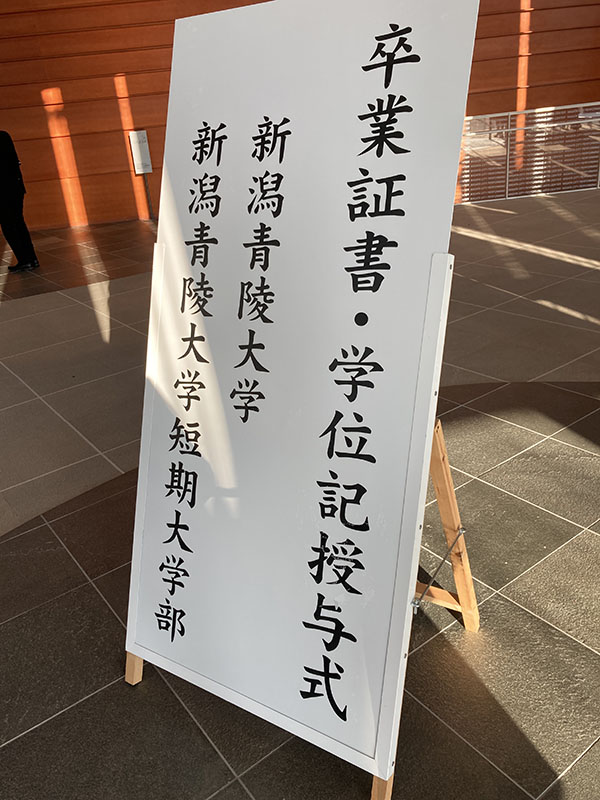 卒業証書・学位記授与式
新潟青陵大学
新潟青陵大学短期大学部